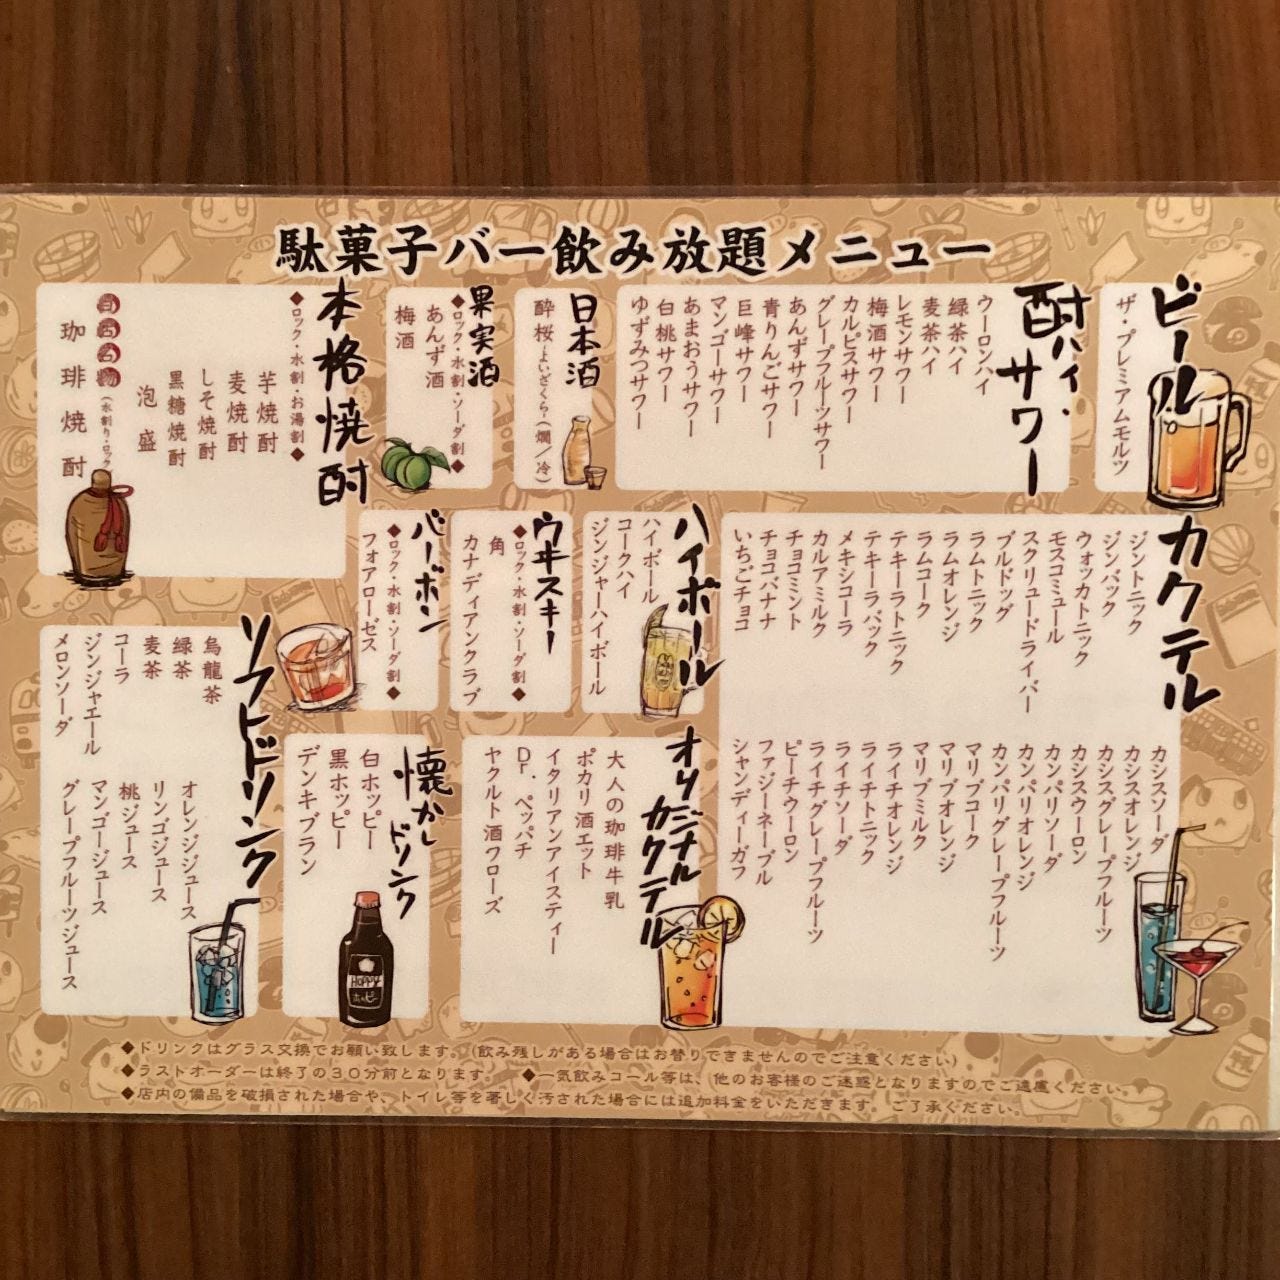 駄菓子バー飲み放題メニュー
ビール
ザ・プレミアムモルツ
酎ハイ・サワー
ウーロンハイ
緑茶ハイ
麦茶ハイ
レモンサワー
梅酒サワー
カルピスサワー
グレープフルーツサワー
あんずサワー
青りんごサワー
巨峰サワー
マンゴーサワー
あまおうサワー
白桃サワー
ゆずみつサワー
日本酒
酔桜(よいざくら)(燗/冷)
果実酒
◆ロック・水割・ソーダ割◆
あんず酒
梅酒
本格焼酎
◆ロック・水割・お湯割◆
芋焼酎
麦焼酎
しそ焼酎
黒糖焼酎
泡盛
(水割り・ロック
珈琲焼酎
カクテル
ジントニック
ジンバック
ウォッカトニック
モスコミュール
スクリュードライバー
ブルドッグ
ラムトニック
ラムオレンジ
ラムコーク
テキーラトニック
テキーラバック
メキシコーラ
カルアミルク
チョコミント
チョコバナナ
いちごチョコ
カシスソーダ
カシスオレンジ
カシスグレープフルーツ
カシスウーロン
カンパリソーダ
カンパリオレンジ
カンパリグレープフルーツ
マリブコーク
マリブオレンジ
マリブミルク
ライチオレンジ
ライチトニック
ライチソーダ
ライチグレープフルーツ
ピーチウーロン
ファジーネーブル
シャンディーガフ
ハイボール
ハイボール
コークハイ
ジンジャーハイボール
ウヰスキー
◆ロック・水割・ソーダ割◆
角
カナディアンクラブ
バーボン
◆ロック・水割・ソーダ割◆
フォアローゼス
オリジナルカクテル
大人の珈琲牛乳
ポカリ酒エット
イタリアンアイスティー
Dr.ペッパチ
ヤクルト酒ワローズ
懐かしドリンク
白ホッピー
黒ホッピー
デンキブラン
HOPPY
ホッピー
ソフトドリンク
烏龍茶
緑茶
麦茶
コーラ
ジンジャエール
メロンソーダ
オレンジジュース
リンゴジュース
桃ジュース
マンゴージュース
グレープフルーツジュース
◆ドリンクはグラス交換でお願い致します。(飲み残しがある場合はお替りできませんのでご注意ください)
◆ラストオーダーは終了の30分前となります。 ◆一気飲みコール等は、他のお客様のご迷惑となりますのでご遠慮ください。
◆店内の備品を破損された場合や、トイレ等を著しく汚された場合には追加料金をいただきます。ご了承ください。